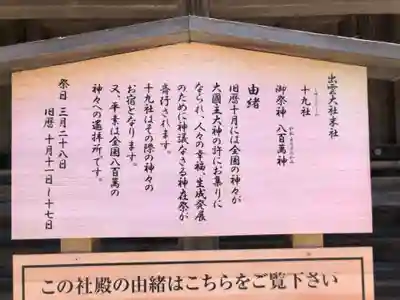 出雲大社末社
十九社
御祭神 八百萬神
由緒
旧暦十月には全国の神々が
大國主大神の許にお集りに
なられ、人々の幸福、生成発展
のために神議なさる神在祭が
斎行されます。
十九社はその際の神々の
お宿となります。
又、平素は全国八百萬の
神々への遥拝所です。
祭日 三月二十八日
旧暦 十月十一日〜十七日
この社殿の由緒はこちらをご覧下さい